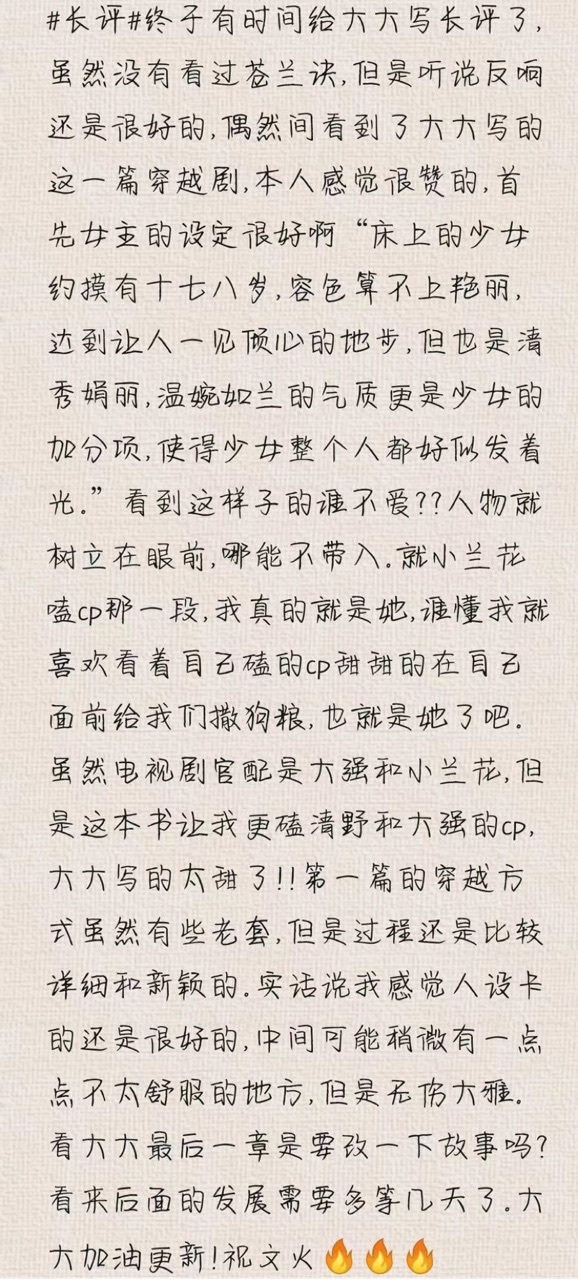 #长评#终于有时间给大大写长评了,
虽然没有看过苍兰诀,但是听说反响
还是很好的,偶然间看到了大大写的
这一篇穿越剧,本人感觉很赞的,首
先女主的设定很好啊“床上的少女
约摸有十七八岁,容色算不上艳丽,
达到让人一见倾心的地步,但也是清
秀娟丽,温婉如兰的气质更是少女的
加分项,使得少女整个人都好似发着
光.”看到这样子的谁不爱??人物就
树立在眼前,哪能不带入.就小兰花
嗑cp那一段,我真的就是她,谁懂我就
喜欢看着自己磕的cp甜甜的在自己
面前给我们撒狗粮,也就是她了吧。
虽然电视剧官配是大强和小兰花,但
是这本书让我更磕清野和大强的cp,
大大写的太甜了!!第一篇的穿越方
式虽然有些老套,但是过程还是比较
详细和新颖的.实话说我感觉人设卡
的还是很好的,中间可能稍微有一点
点不太舒服的地方,但是无伤大雅。
看大大最后一章是要改一下故事吗?
看来后面的发展需要多等几天了.大
大加油更新!祝文火🔥🔥🔥